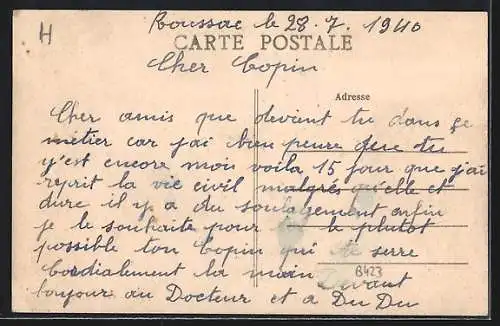 H
Roussac le 28.7.1940
CARTE POSTALE
Cher Copin
Adresse
Cher amis que devient tu dans se
métier car j'ai bien peure que tu
y'est encore mois voila 15 jour que j'ai
reprit la vie civil malgrés qu'elle et
dure il y a du soulagement enfin
je le souhaite pour toi le plutot
possible ton Copin qui te serre
Cordialement la main
B423
Durant
bonjour au Docteur et a Du Du